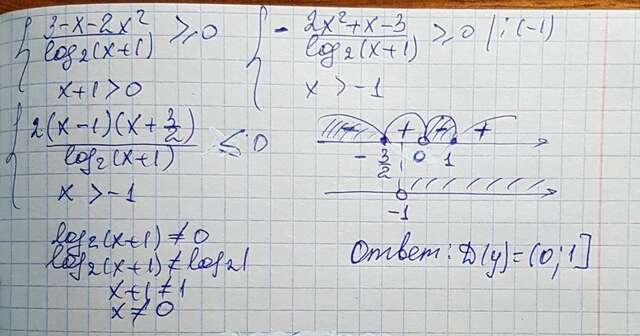 { (3-x-2x²)/(log₂(x+1)) ≥ 0
x+1>0
{ - (2x²+x-3)/(log₂(x+1)) ≥ 0 |:(-1)
x > -1
{ (2(x-1)(x+3/2))/(log₂(x+1)) ≤ 0
x > -1
- + - +
-3/2 0 1
-1
log₂(x+1) ≠ 0
log₂(x+1) ≠ log₂1
x+1 ≠ 1
x ≠ 0
Ответ: D(y) = (0;1]